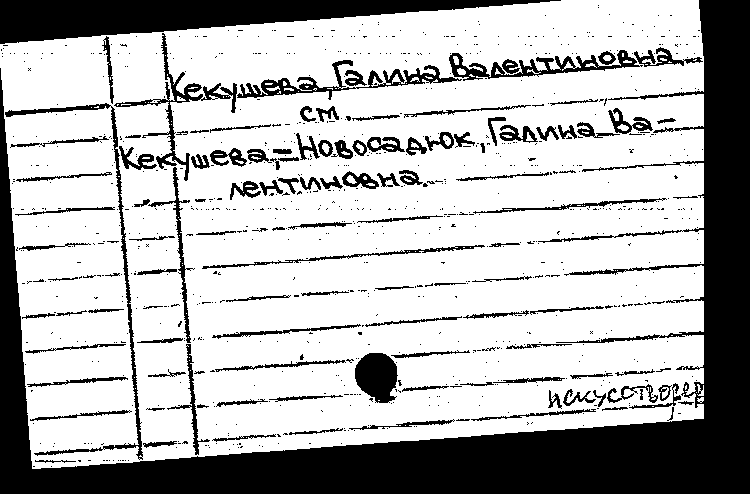 Кекушева, Галина Валентиновна
см.
Кекушева,=Новосадюк, Галина Ва-
лентиновна.